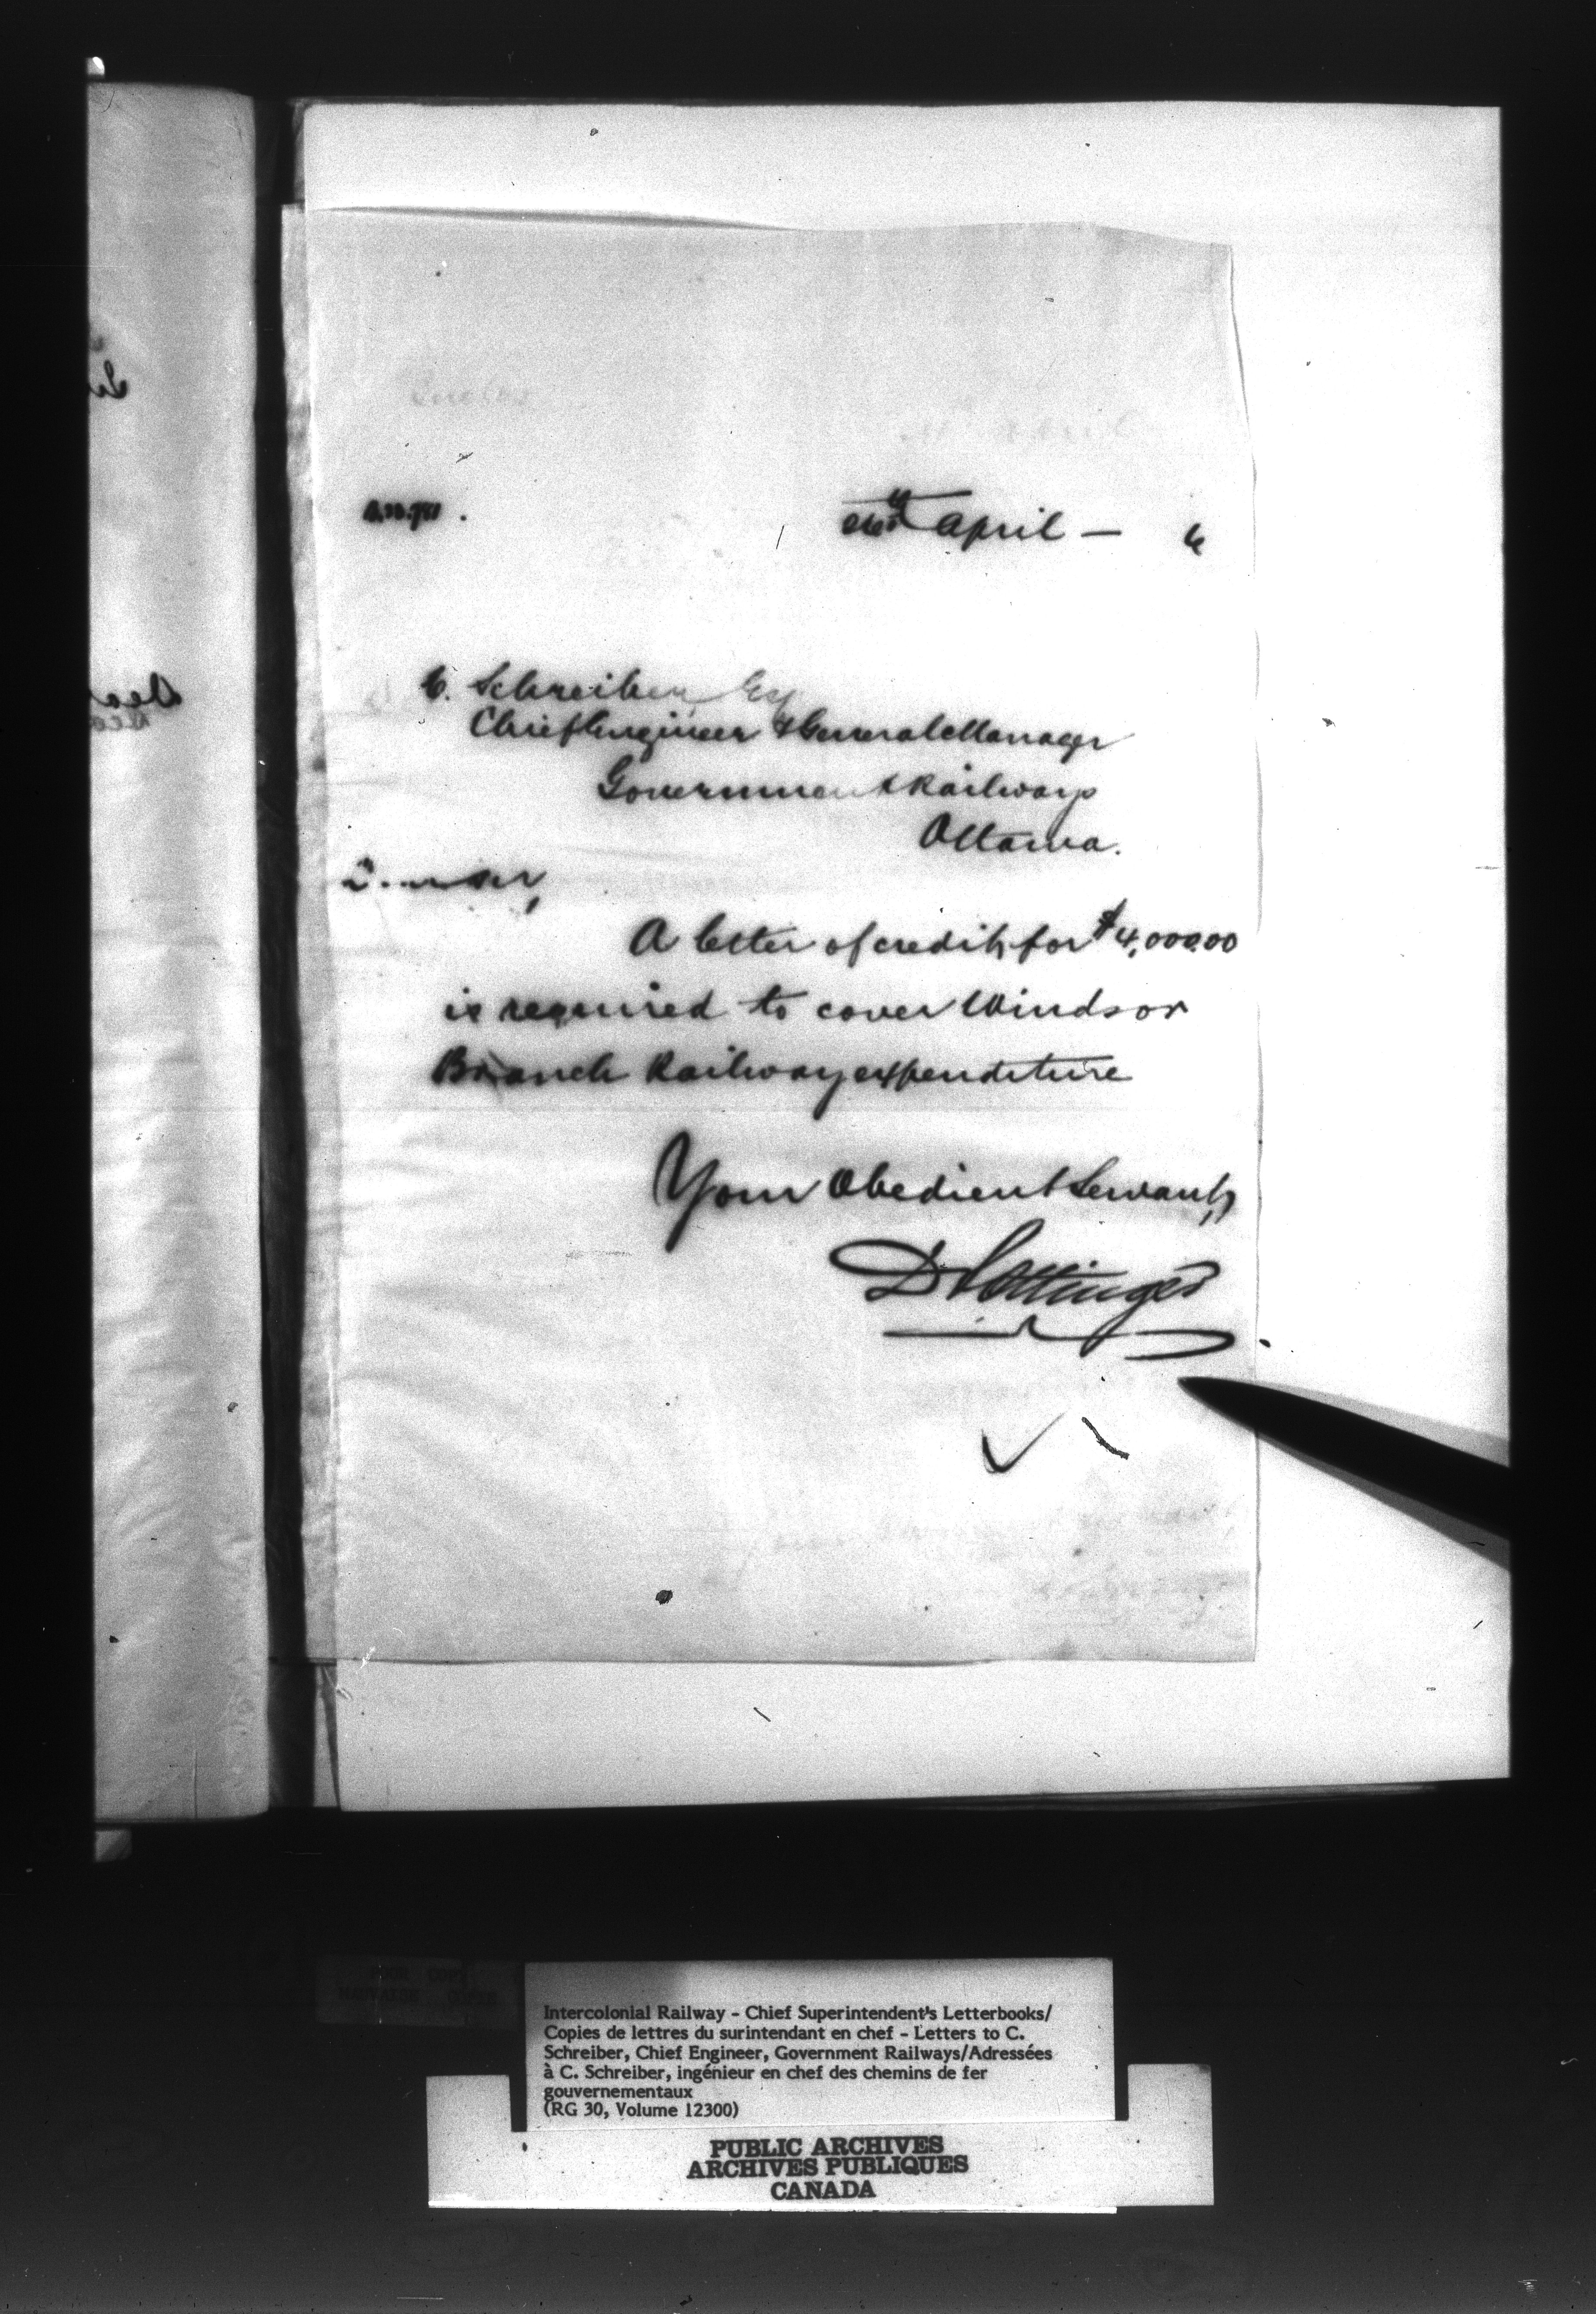 April — 6
C. Schreiber Esq
Chief Engineer & General Manager
Government Railways
Ottawa.
Dear Sir,
A letter of credit for $4,000.00
is required to cover Windsor
Branch Railway expenditure
Your Obedient Servant,
D Pottinger
Intercolonial Railway - Chief Superintendent's Letterbooks/
Copies de lettres du surintendant en chef - Letters to C.
Schreiber, Chief Engineer, Government Railways/Adressées
à C. Schreiber, ingénieur en chef des chemins de fer
gouvernementaux
(RG 30, Volume 12300)
PUBLIC ARCHIVES
ARCHIVES PUBLIQUES
CANADA